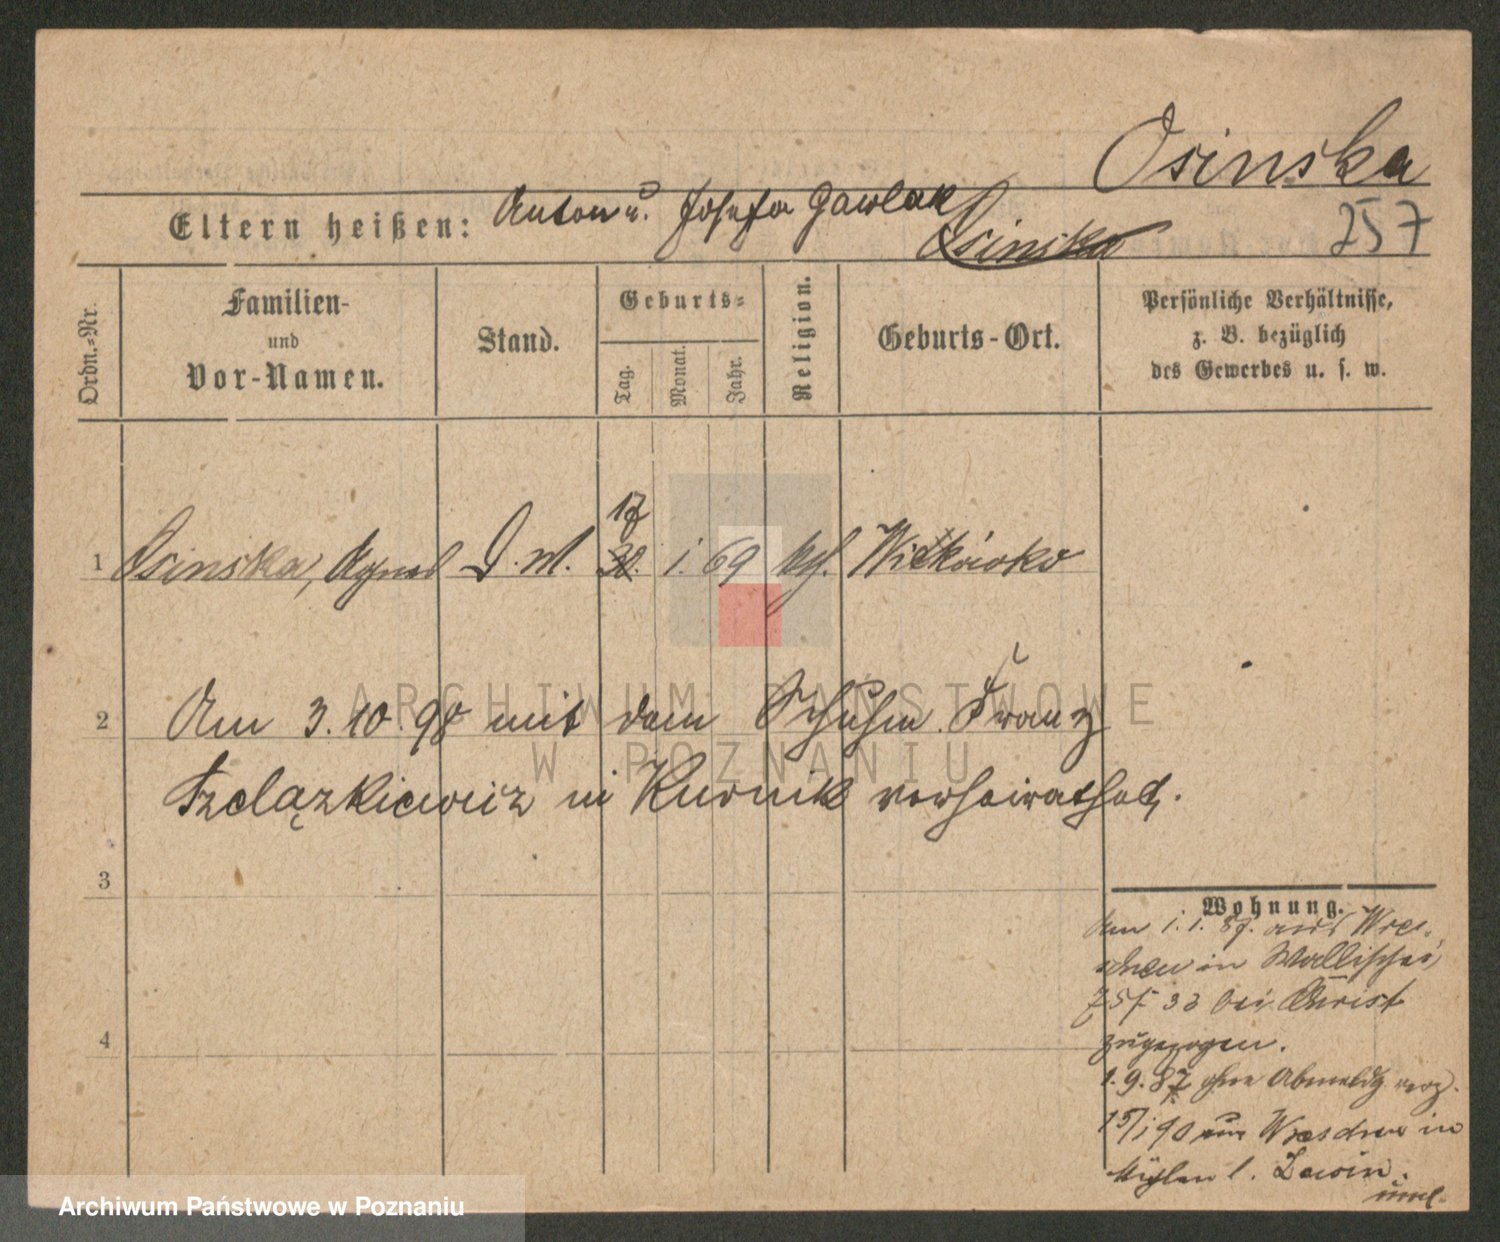 Osinska
Eltern heißen: Anton u. Josefa Gawlak
Osinska 257
Ordn.-Nr.
Familien-
und
Vor-Namen.
Stand.
Geburts-
Tag.
Monat.
Jahr.
Religion.
Geburts-Ort.
Persönliche Verhältnisse,
z. B. bezüglich
des Gewerbes u. s. w.
17
1 Osinska, Agnes D. M. 30. 1. 69 kth.
2 Am 3.10.98 mit dem Schuhm. Franz
Szelązkiewicz in Kurnik verheirathet.
3
4
Wohnung.
Am 1.1.87. aus Wre-
schen in Wallischei
bei Christ
zugezogen.
1.9.87 ohne Abmeldg verz.
15/1 90 aus Wreschen in
ARCHIWUM PAŃSTWOWE
W POZNANIU
Archiwum Państwowe w Poznaniu